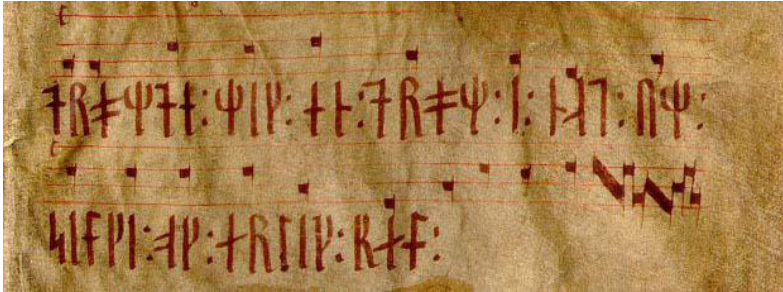 ᛑᚱᚯᛘᛑᛅ:ᛘᛁᚴ:ᛅᚿ:ᛑᚱᚯᛘ:ᛁ:ᚿᛆᛐ:ᚢᛘ:
ᛋᛁᛚᚴᛁ:ᚮᚴ:ᛅᚱᛚᛁᚴ:ᛔᛅᛚ: